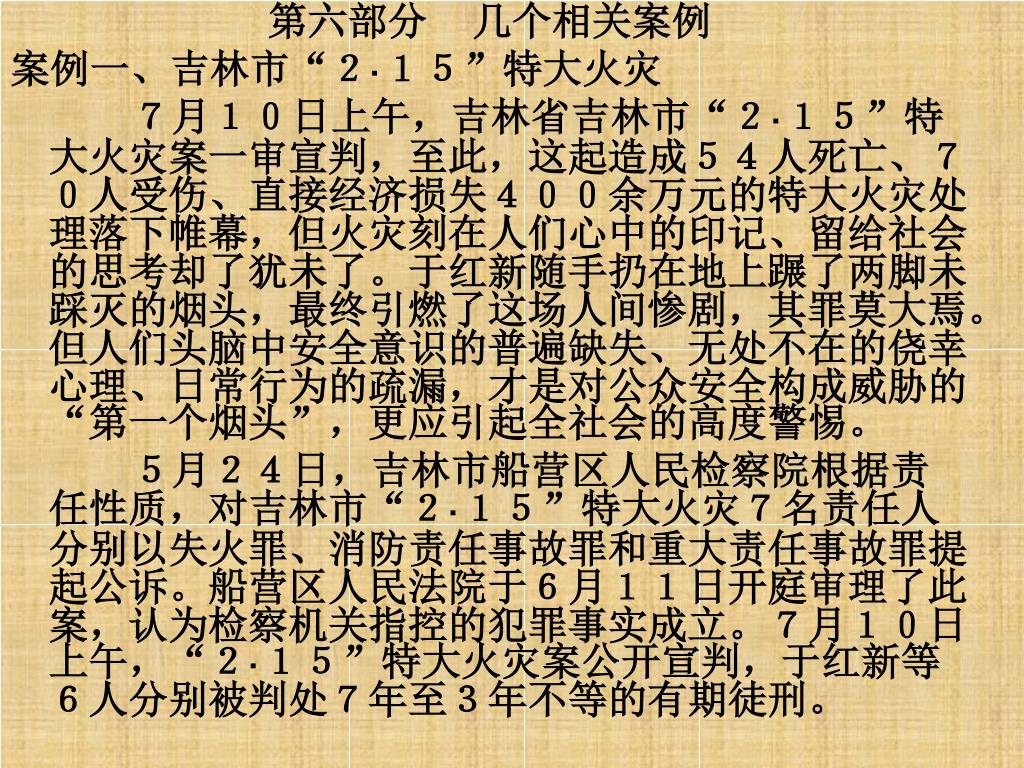 第六部分　几个相关案例
案例一、吉林市“２·１５”特大火灾
７月１０日上午，吉林省吉林市“２·１５”特
大火灾案一审宣判，至此，这起造成５４人死亡、７
０人受伤、直接经济损失４００余万元的特大火灾处
理落下帷幕，但火灾刻在人们心中的印记、留给社会
的思考却了犹未了。于红新随手扔在地上蹍了两脚未
踩灭的烟头，最终引燃了这场人间惨剧，其罪莫大焉。
但人们头脑中安全意识的普遍缺失、无处不在的侥幸
心理、日常行为的疏漏，才是对公众安全构成威胁的
“第一个烟头”，更应引起全社会的高度警惕。
５月２４日，吉林市船营区人民检察院根据责
任性质，对吉林市“２·１５”特大火灾７名责任人
分别以失火罪、消防责任事故罪和重大责任事故罪提
起公诉。船营区人民法院于６月１１日开庭审理了此
案，认为检察机关指控的犯罪事实成立。７月１０日
上午，“２·１５”特大火灾案公开宣判，于红新等
６人分别被判处７年至３年不等的有期徒刑。